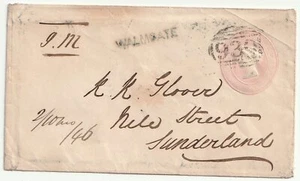 J.M
WALMGATE
930
R. R. Glover
Nile Street
Sunderland
/46